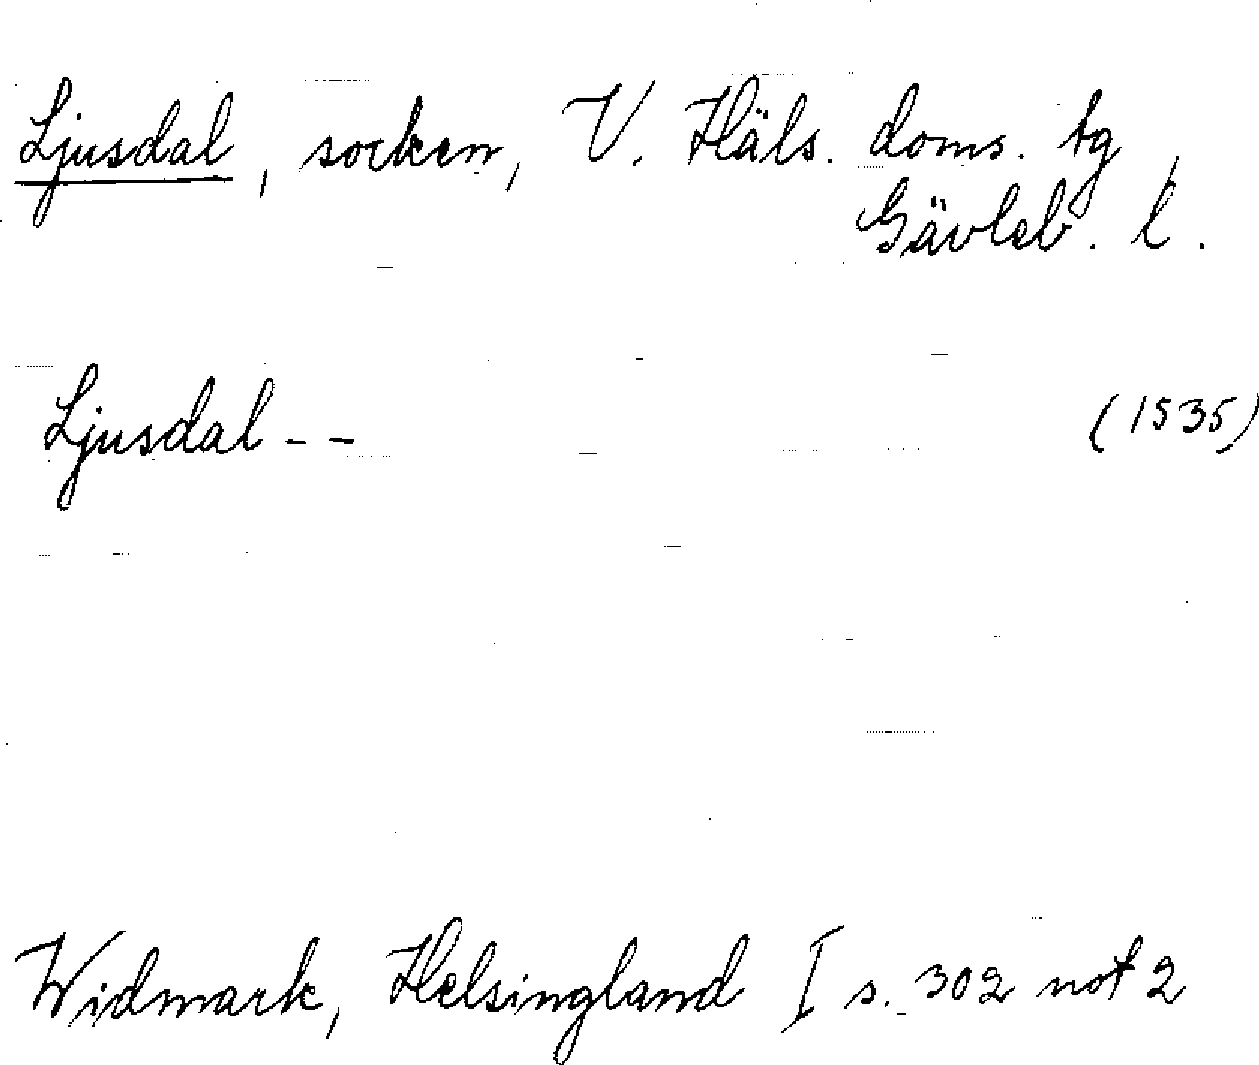 Ljusdal, socken, V. Häls. doms. tg,
Gävleb. l.
Ljusdal - - (1535)
Widmark, Helsingland I s. 302 not 2